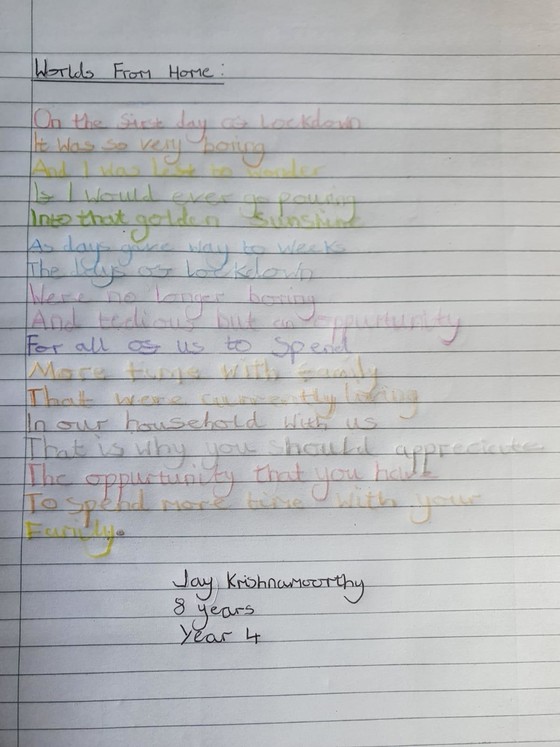 Worlds From Home:
On the first day of lockdown
It was so very boring
And I was left to wonder
If I would ever go pouring
Into that golden sunshine
As days gave way to weeks
The days of lockdown
Were no longer boring
And tedious but an oppurtunity
For all of us to spend
More time with family
That were currently living
In our household with us
That is why you should appreciate
The oppurtunity that you have
To spend more time with your
Family.
Jay Krishnamoorthy
8 years
Year 4